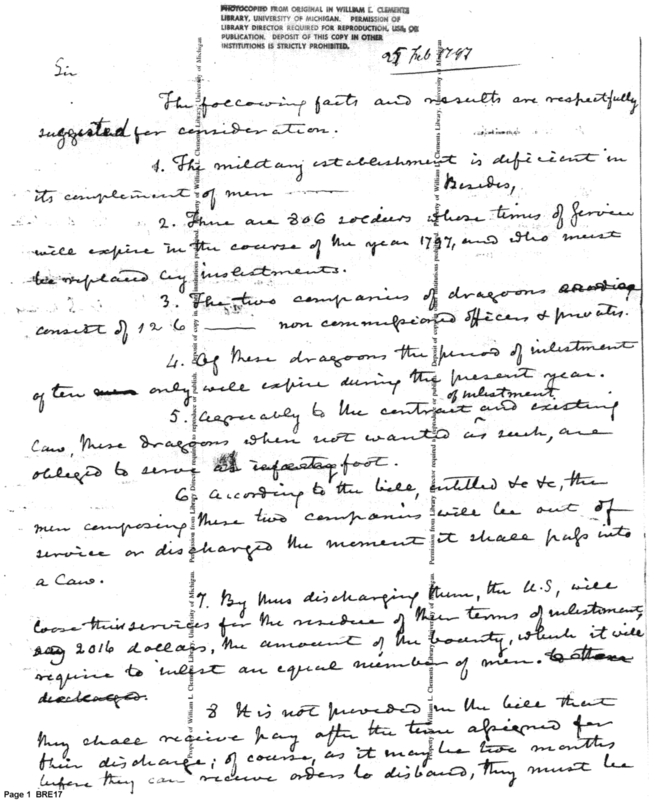 PHOTOCOPIED FROM ORIGINAL IN WILLIAM L. CLEMENTS
LIBRARY, UNIVERSITY OF MICHIGAN. PERMISSION OF
LIBRARY DIRECTOR REQUIRED FOR REPRODUCTION, USE, OR
PUBLICATION. DEPOSIT OF THIS COPY IN OTHER
INSTITUTIONS IS STRICTLY PROHIBITED.
25 Feb 1797
Sir
The following facts and results are respectfully
suggested for consideration.
1. The military establishment is deficient in
its complement of men ——— Besides,
2. There are 306 soldiers whose times of service
will expire in the course of the year 1797, and who must
be replaced by inlistments.
3. The two companies of dragoons
consist of 126 ——— non commissioned officers & privates.
4. Of these dragoons the period of inlistment
of ten only will expire during the present year.
of inlistment
5. Agreeably to the contract and existing
law, these dragoons when not wanted as such, are
obliged to serve as foot.
6. According to the bill, entitled &c &c, the
men composing these two companies will be out of
service or discharged the moment it shall pass into
a law.
7. By thus discharging them, the U.S, will
loose their services for the residue of their terms of inlistment,
2016 dollars, the amount of the bounty, which it will
require to inlist an equal number of men.
discharged.
8 It is not provided in the bill that
they shall receive pay after the time assigned for
their discharge; of course, as it may be two months
before they can receive orders to disband, they must be
Property of William L. Clements Library, University of Michigan. Permission from Library Director required to reproduce or publish. Deposit of copy in other institutions prohibited.
Page 1 BRE17